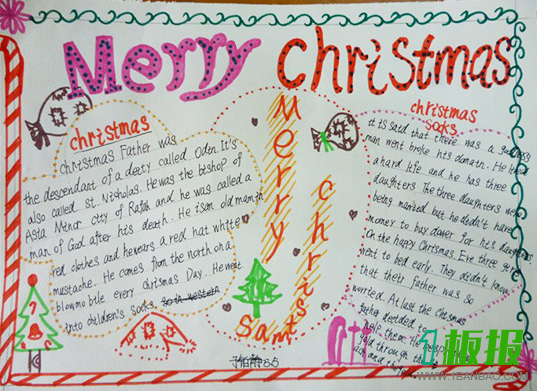 Merry christmas
christmas
christmas Father was
the descendant of a deety called Odin. It's
also called St. Nisholas. He was the bishop of
Asia Menor city of and he was called a
man of God after his death. He is an old man in
red clothes and he wears a red hat white
mustache. He comes from the north on a
blowmobile every chrismas Day. He went
into children's socks.
Merry christmas
Santa
christmas
socks
it is said that there was a
man went broke his He
a hard life and he has three
daughters The three daughters were
being married but he didn't have
money to buy for his daughters
On the happy Christmas Eve three girls
went to bed early. They didn't know
that their father was so
worried. At last the Chrismas
father decided
help them. He
gold through the
and the
65
板报
WWW.1BANBAO.COM